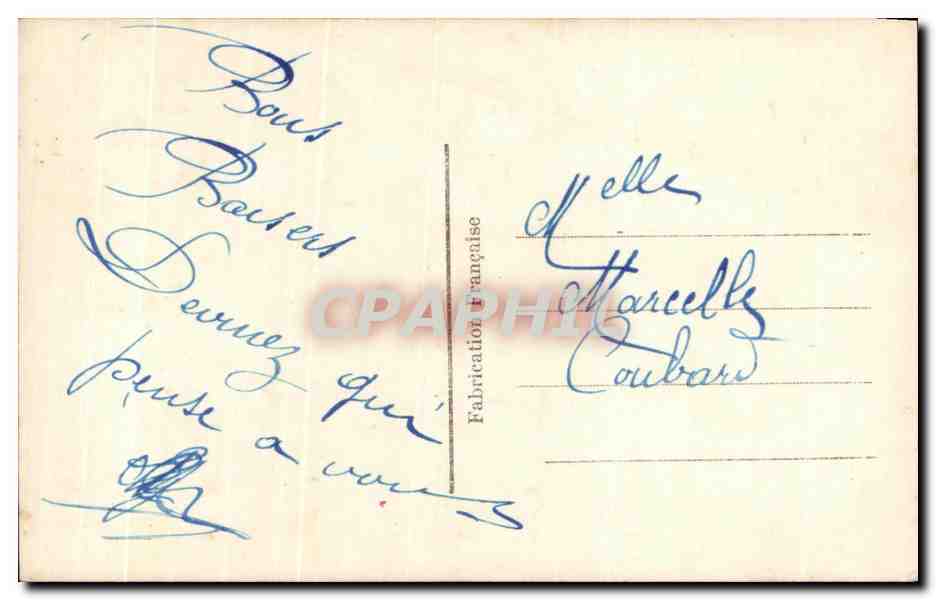 Bons
Baisers
Devinez qui
pense a vous
Fabrication Française
Melle
Marcelle
Coubard
CPAPHIL